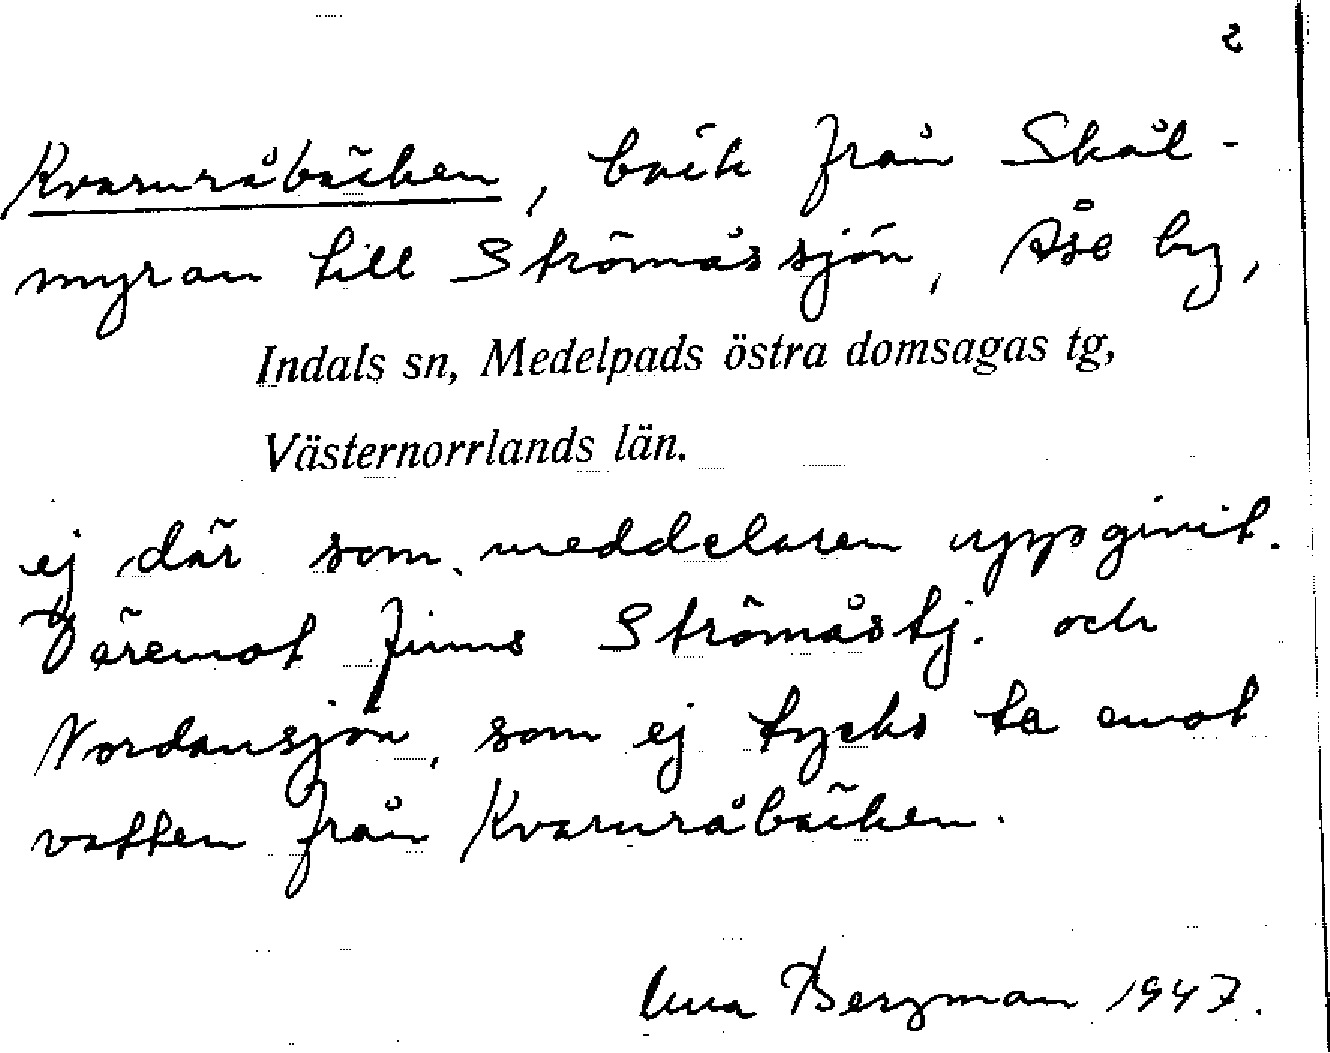 2
Kvarnråbäcken, bäck från Skål-
myran till Strömåssjön, Åse by,
Indals sn, Medelpads östra domsagas tg,
Västernorrlands län.
ej där som meddelaren uppgivit.
Däremot finns Strömåstj. och
Nordansjön, som ej tycks ta emot
vatten från Kvarnråbäcken.
Bergman 1947.